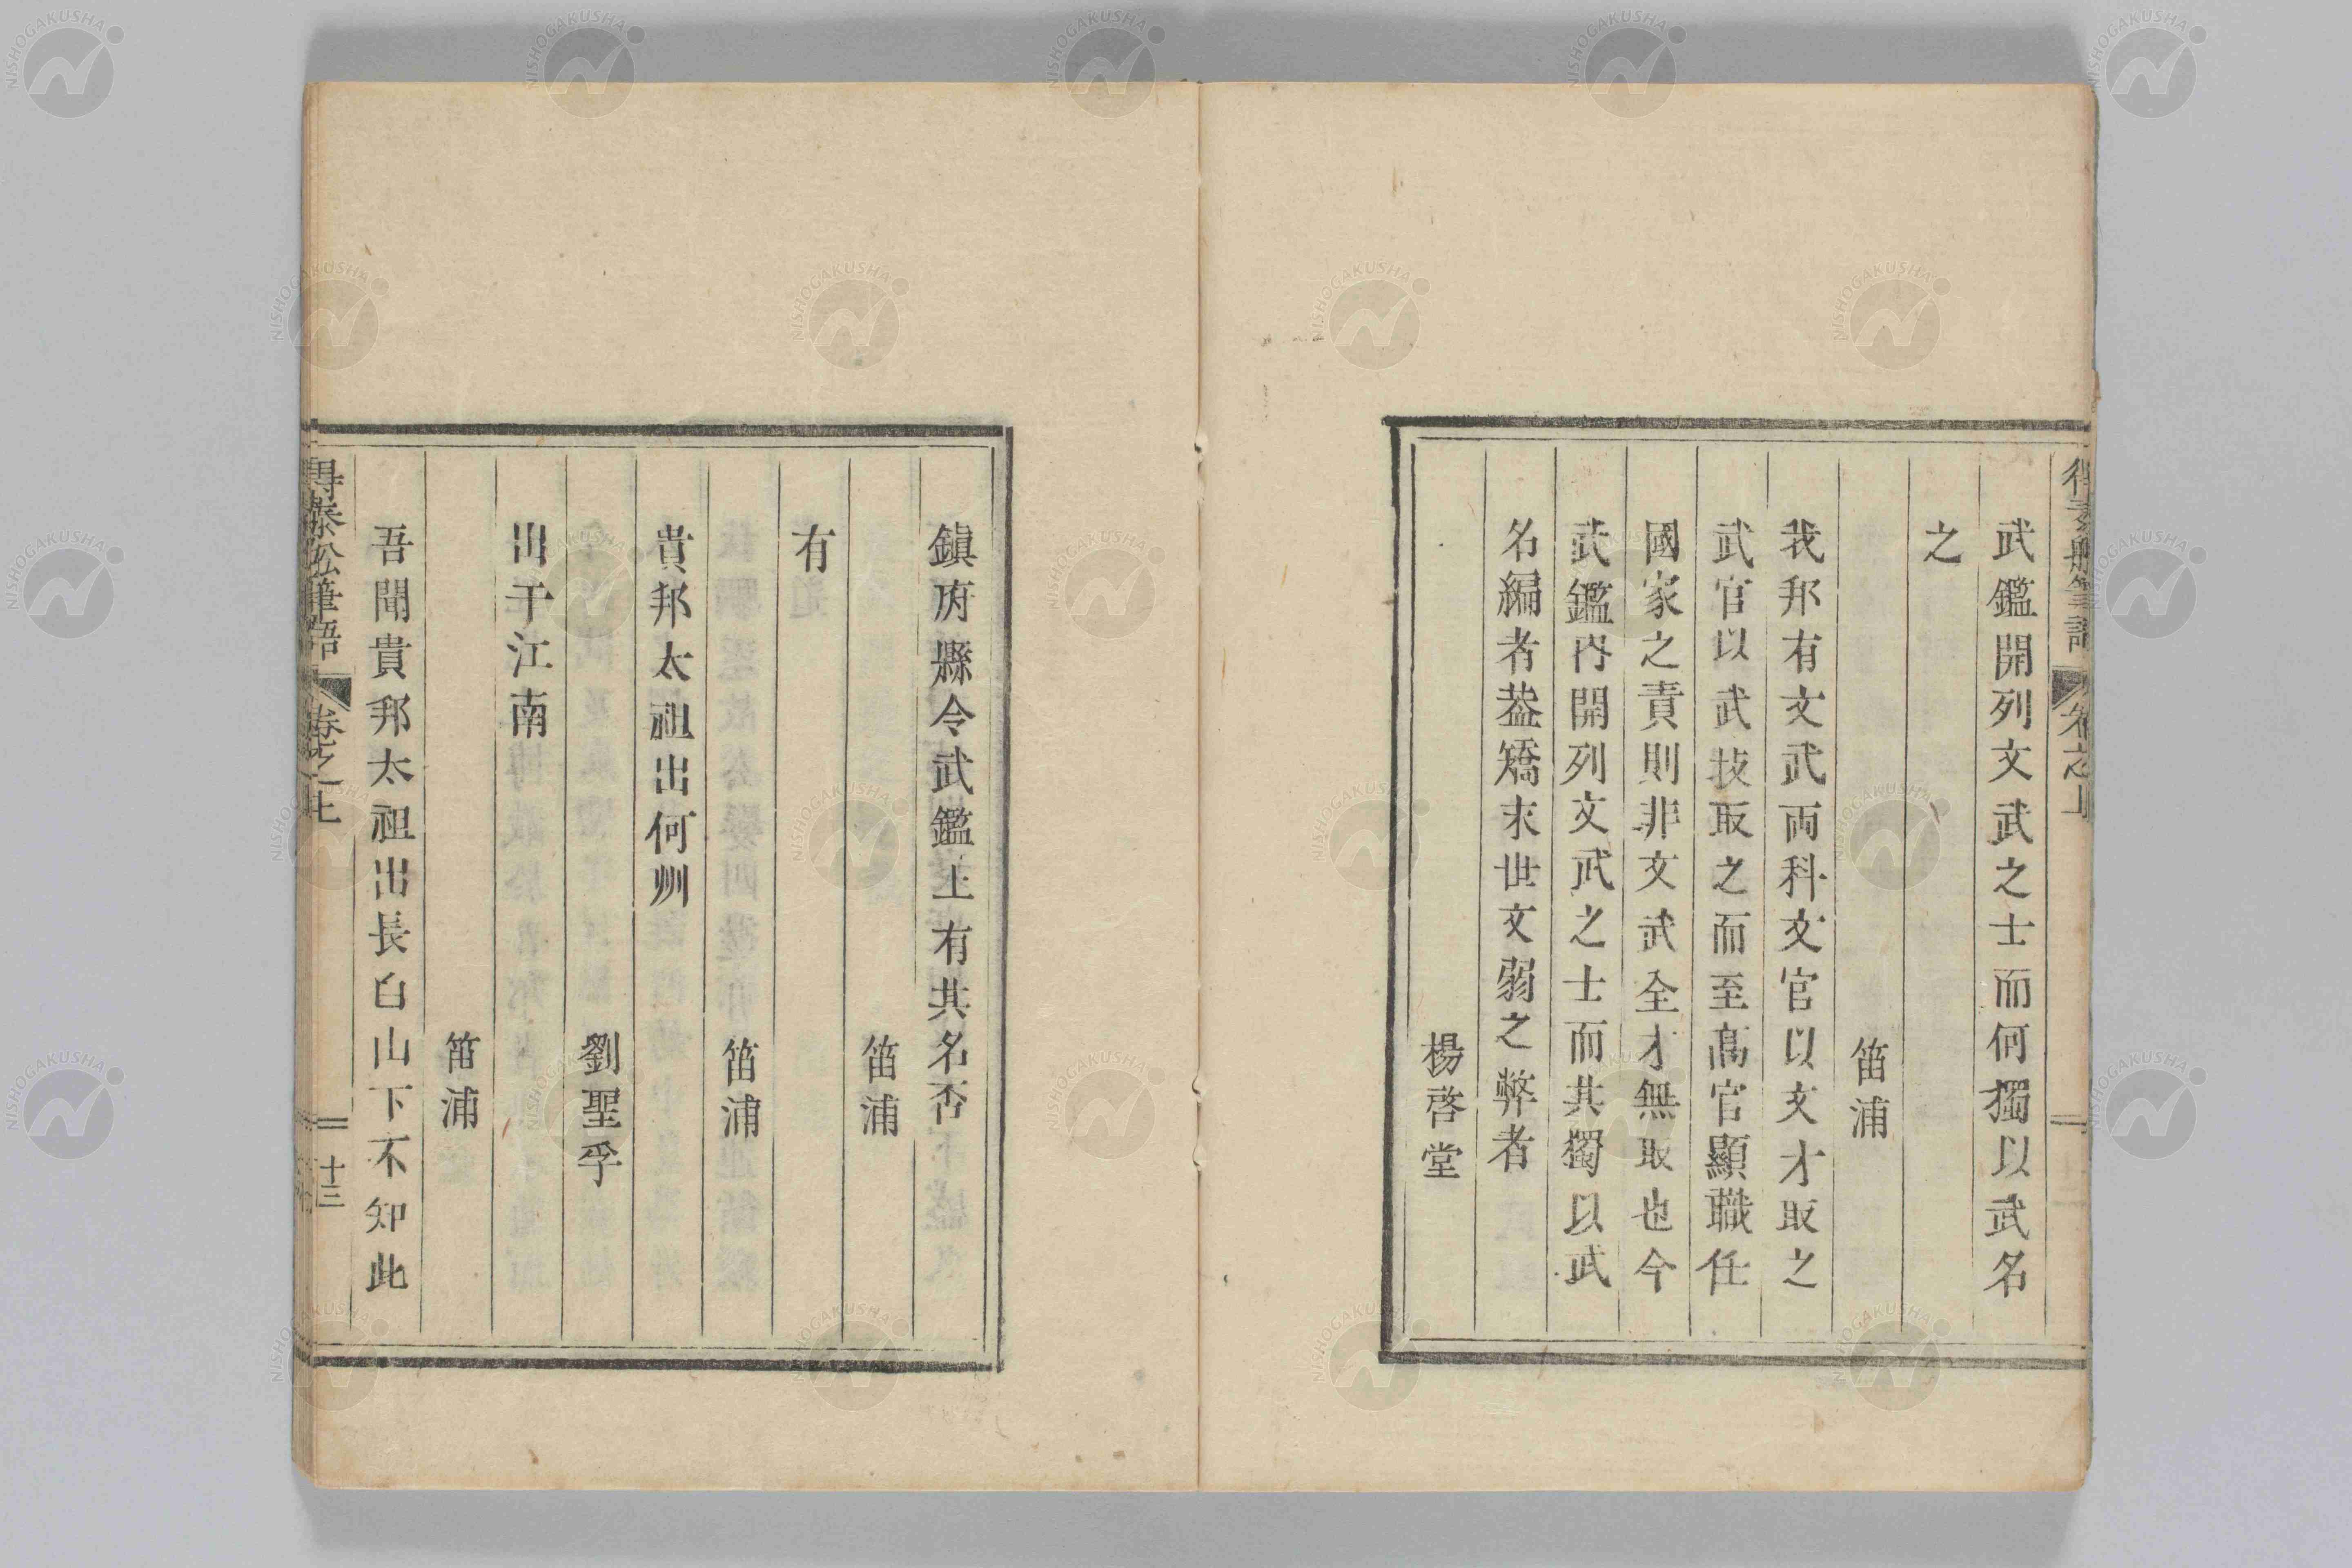 武鑑開列文武之士而何獨以武名
之
笛浦
我邦有文武両科文官以文才取之
武官以武技取之而至髙官顯職任
國家之責則非文武全才無取也今
武鑑内開列文武之士而其獨以武
名編者葢矯末世文弱之弊者
楊啓堂
鎮府縣令武鑑上有其名否
笛浦
有
笛浦
貴邦太祖出何州
劉聖孚
出于江南
笛浦
吾聞貴邦太祖出長白山下不知此
得泰舩筆語
卷之上
十三
NISHOGAKUSHA